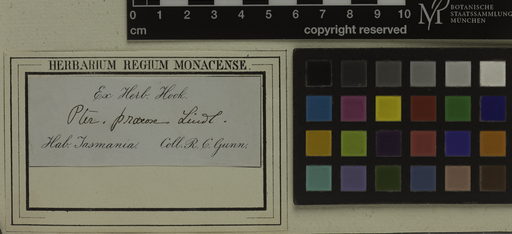 0 1 2 3 4 5 6 7 8 9 10
cm copyright reserved
BOTANISCHE
STAATSSAMMLUNG
MÜNCHEN
HERBARIUM REGIUM MONACENSE.
Ex Herb: Hook.
Pter. præcox Lindl.
Hab: Tasmania. Coll. R. C. Gunn.